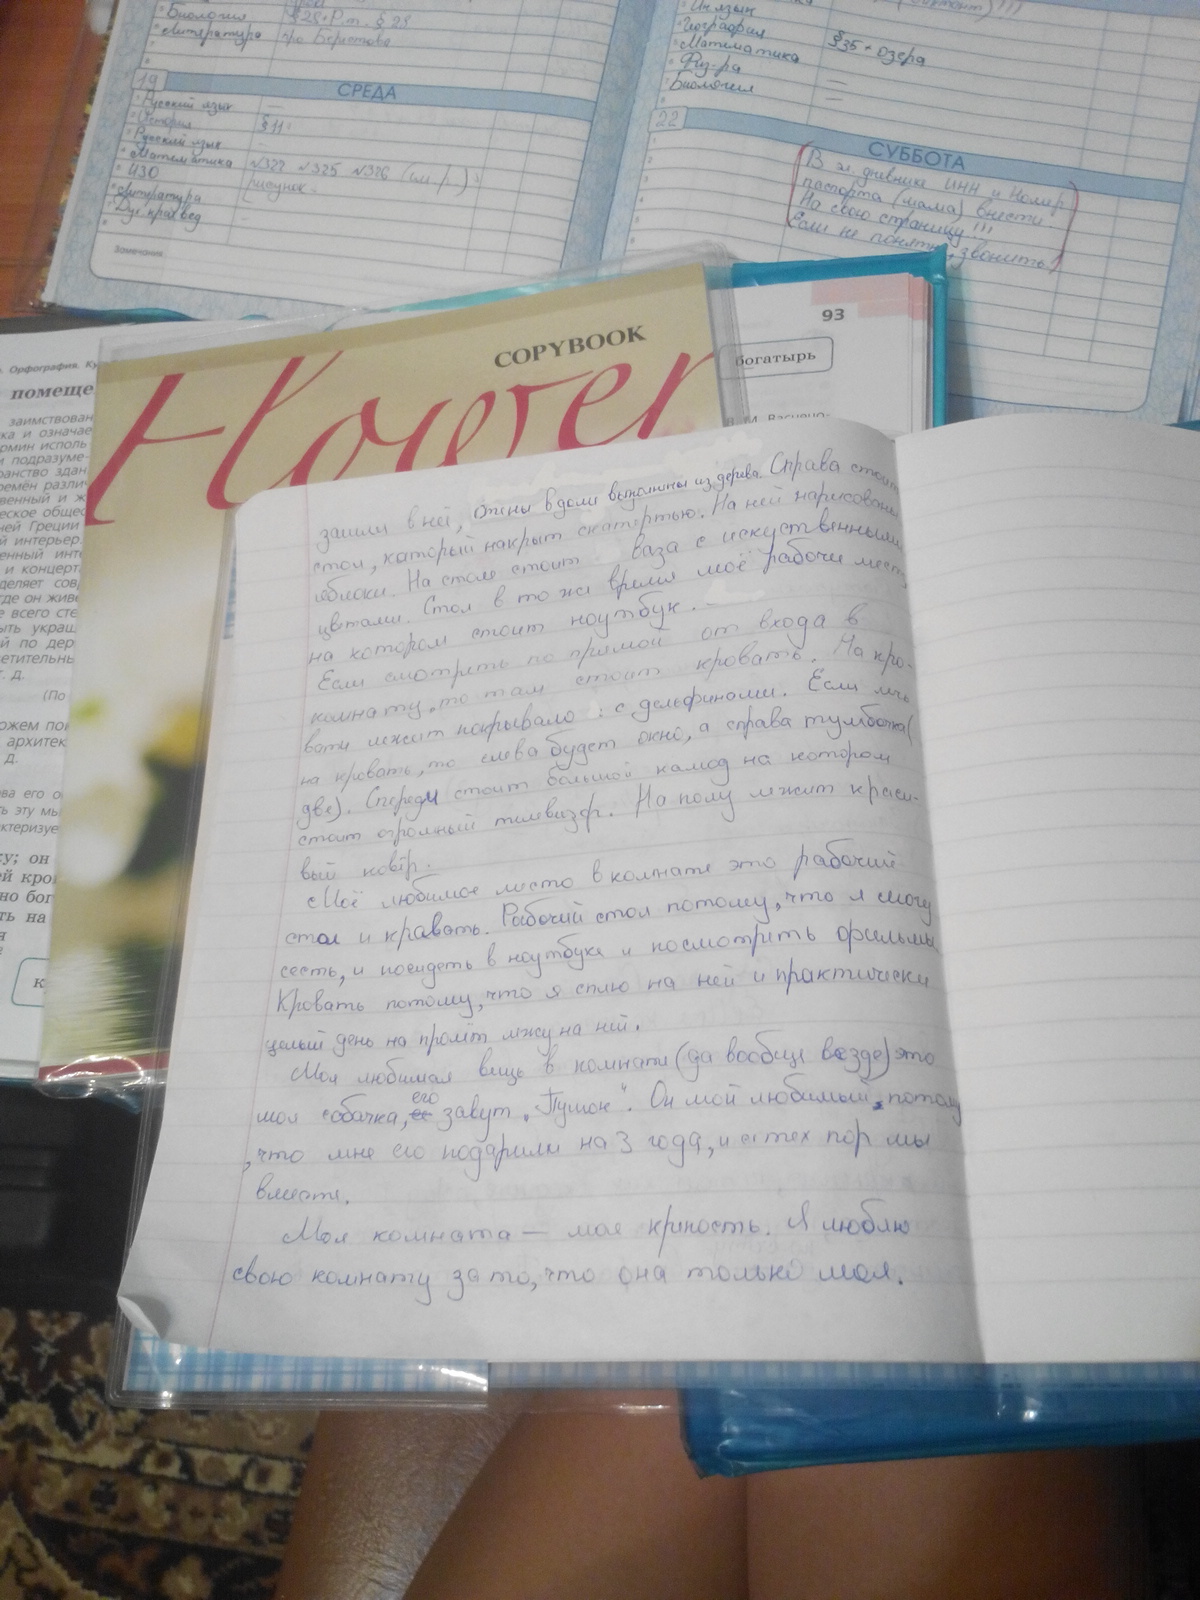 Биология §28. Р.т. §28
Литература про Берестова
19 СРЕДА
Русский язык —
История §11.
Русский язык
Математика №322 №325 №326
ИЗО рисунок.
Литература
Дух краевед
Замечания
Ин. язык
География §35. озера
Математика
Физ-ра —
Биология —
22 СУББОТА
В эл. дневнике ИНН и Номер
паспорта (мама) внести.
На свою страницу!!!
Если не понятно, звонить!
Орфография.
помеще
заимствован
ка и означае
рмин исполь
и подразуме-
ранство здан
ремён различ
венный и ж
ческое общес
ней Греции
й интерьер.
енный инте
и концерт
деляет сов
где он жив
е всего сте
ыть украш
й по дер
ветительны
т. д.
(По
ожем пои
архитек
д.
ва его
ть эту мы
ктеризуе
су; он
ей кро
но бог
ть на
я
к
COPYBOOK
Flower
93
богатырь
зашли в неё, стены в доме выполнены из дерева. Справа стоит
стол, который накрыт скатертью. На ней нарисованы
яблоки. На столе стоит ваза с искуственными
цветами. Стол в то же время моё рабочее место
на котором стоит ноутбук.
Если смотреть по прямой от входа в
комнату, то там стоит кровать. На кро-
вати лежит покрывало с дельфинами. Если лечь
на кровать, то слева будет окно, а справа тумбочка(
две). Спереди стоит большой камод на котором
стоит огромный телевизор. На полу лежит краси-
вый ковёр.
Моё любимое место в комнате это рабочий
стол и кравать. Рабочий стол потому, что я смогу
сесть, и посидеть в ноутбуке и посмотреть фильмы
Кровать потому, что я сплю на ней и практически
целый день на пролёт лежу на ней.
Моя любимая вещь в комнате (да вообще везде) это
моя собачка, его завут „Пушок“. Он мой любимый, потому
,что мне его подарили на 3 года, и с тех пор мы
вместе.
Моя комната — моя крепость. Я люблю
свою комнату за то, что она только моя.